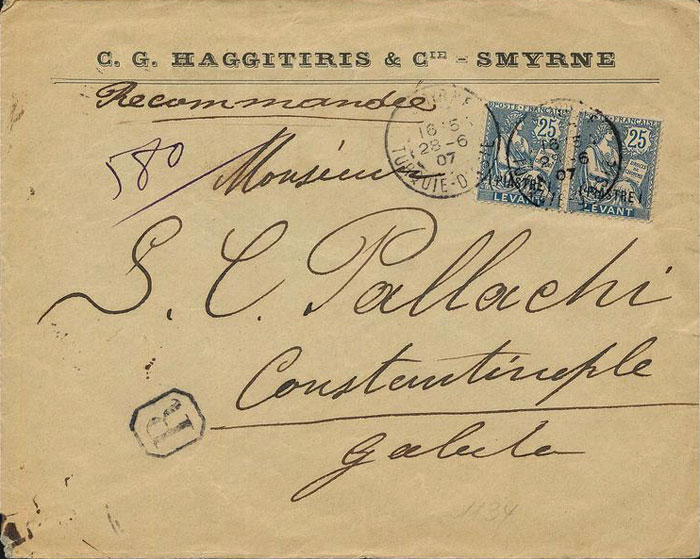 C. G. HAGGITIRIS & CIE - SMYRNE
Recommandée
580
Monsieur
S. C. Pallachi
Constantinople
Galata
R
SMYRNE
16 15
28-6
07
TURQUIE-D'ASIE
16 15
28-6
07
POSTE FRANÇAISE
25
1 PIASTRE 1
LEVANT
POSTE FRANÇAISE
25
1 PIASTRE 1
LEVANT
1134